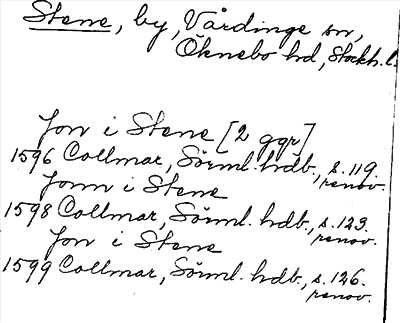 Stene, by, Vårdinge sn,
Öknebo hd, Stockh. l.
Jon i Stene [2 ggr]
1596 Collmar, Sörml. hdb., s. 119.
renov.
Jonn i Stene
1598 Collmar, Sörml. hdb., s. 123.
renov.
Jon i Stene
1599 Collmar, Sörml. hdb., s. 126.
renov.